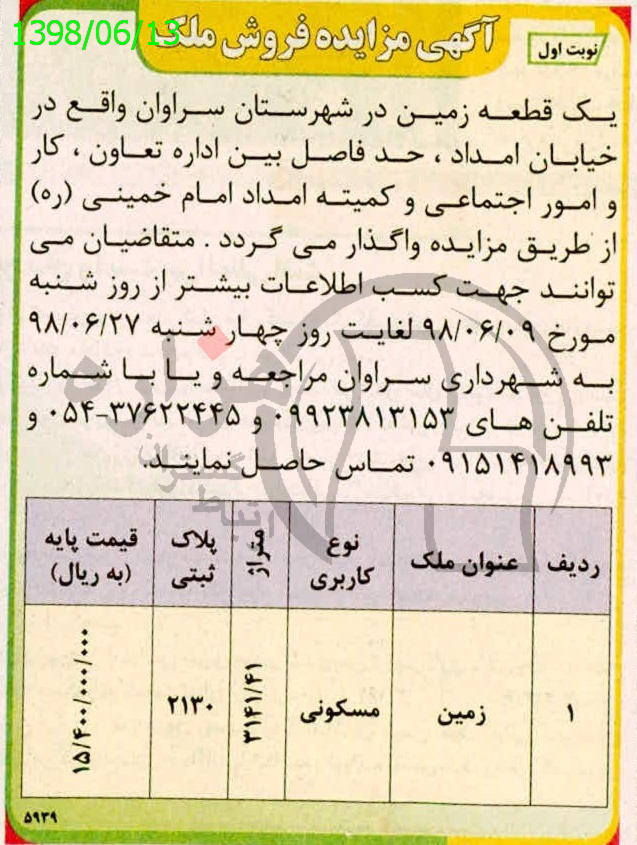 1398/06/13
آگهی مزایده فروش ملک
نوبت اول
یک قطعه زمین در شهرستان سراوان واقع در
خیابان امداد ، حد فاصل بین اداره تعاون ، کار
و امور اجتماعی و کمیته امداد امام خمینی (ره)
از طریق مزایده واگذار می گردد . متقاضیان می
توانند جهت کسب اطلاعات بیشتر از روز شنبه
مورخ ۹۸/۰۶/۰۹ لغایت روز چهار شنبه ۹۸/۰۶/۲۷
به شهرداری سراوان مراجعه و یا با شماره
تلفن های ۰۹۹۲۳۸۱۳۱۵۳ و ۳۷۶۲۲۴۴۵-۰۵۴ و
۰۹۱۵۱۴۱۸۹۹۳ تماس حاصل نمایند.
ردیف عنوان ملک نوع کاربری متراژ پلاک ثبتی قیمت پایه (به ریال)
۱ زمین مسکونی ۳۱۴۱/۴۱ ۲۱۳۰ ۱۵/۴۰۰/۰۰۰/۰۰۰
۵۹۳۹
هزاره